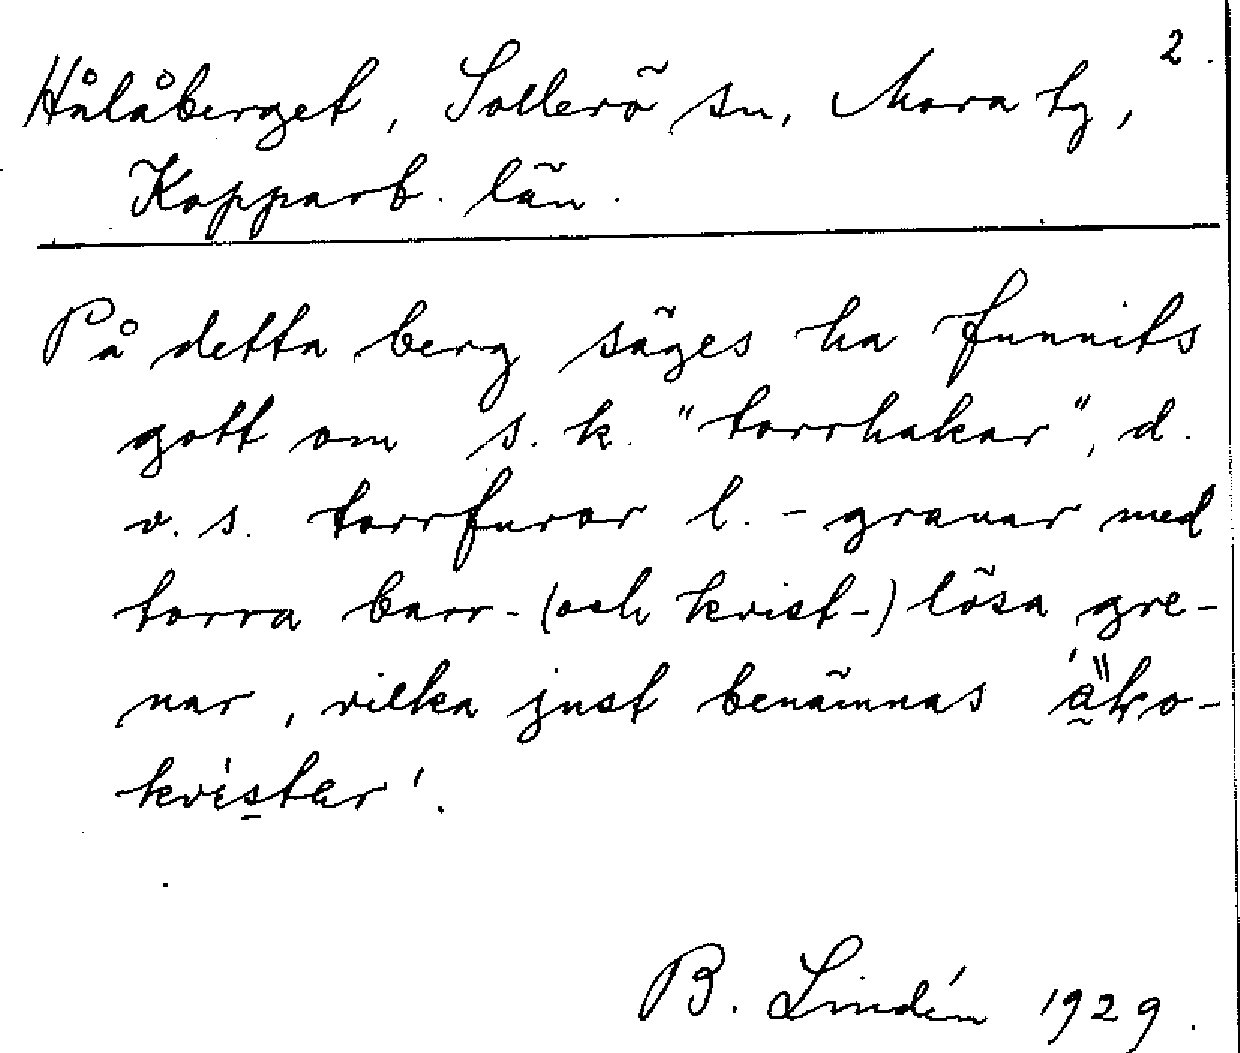 2.
Hålåberget, Sollerö sn, Mora tg,
Kopparb. län.
På detta berg säges ha funnits
gott om s. k. "torrhakar", d.
v. s. torrfuror l. - granar med
torra barr- (och kvist-) lösa gre-
nar, vilka just benämnas
kvistar'.
B. Lindén 1929.